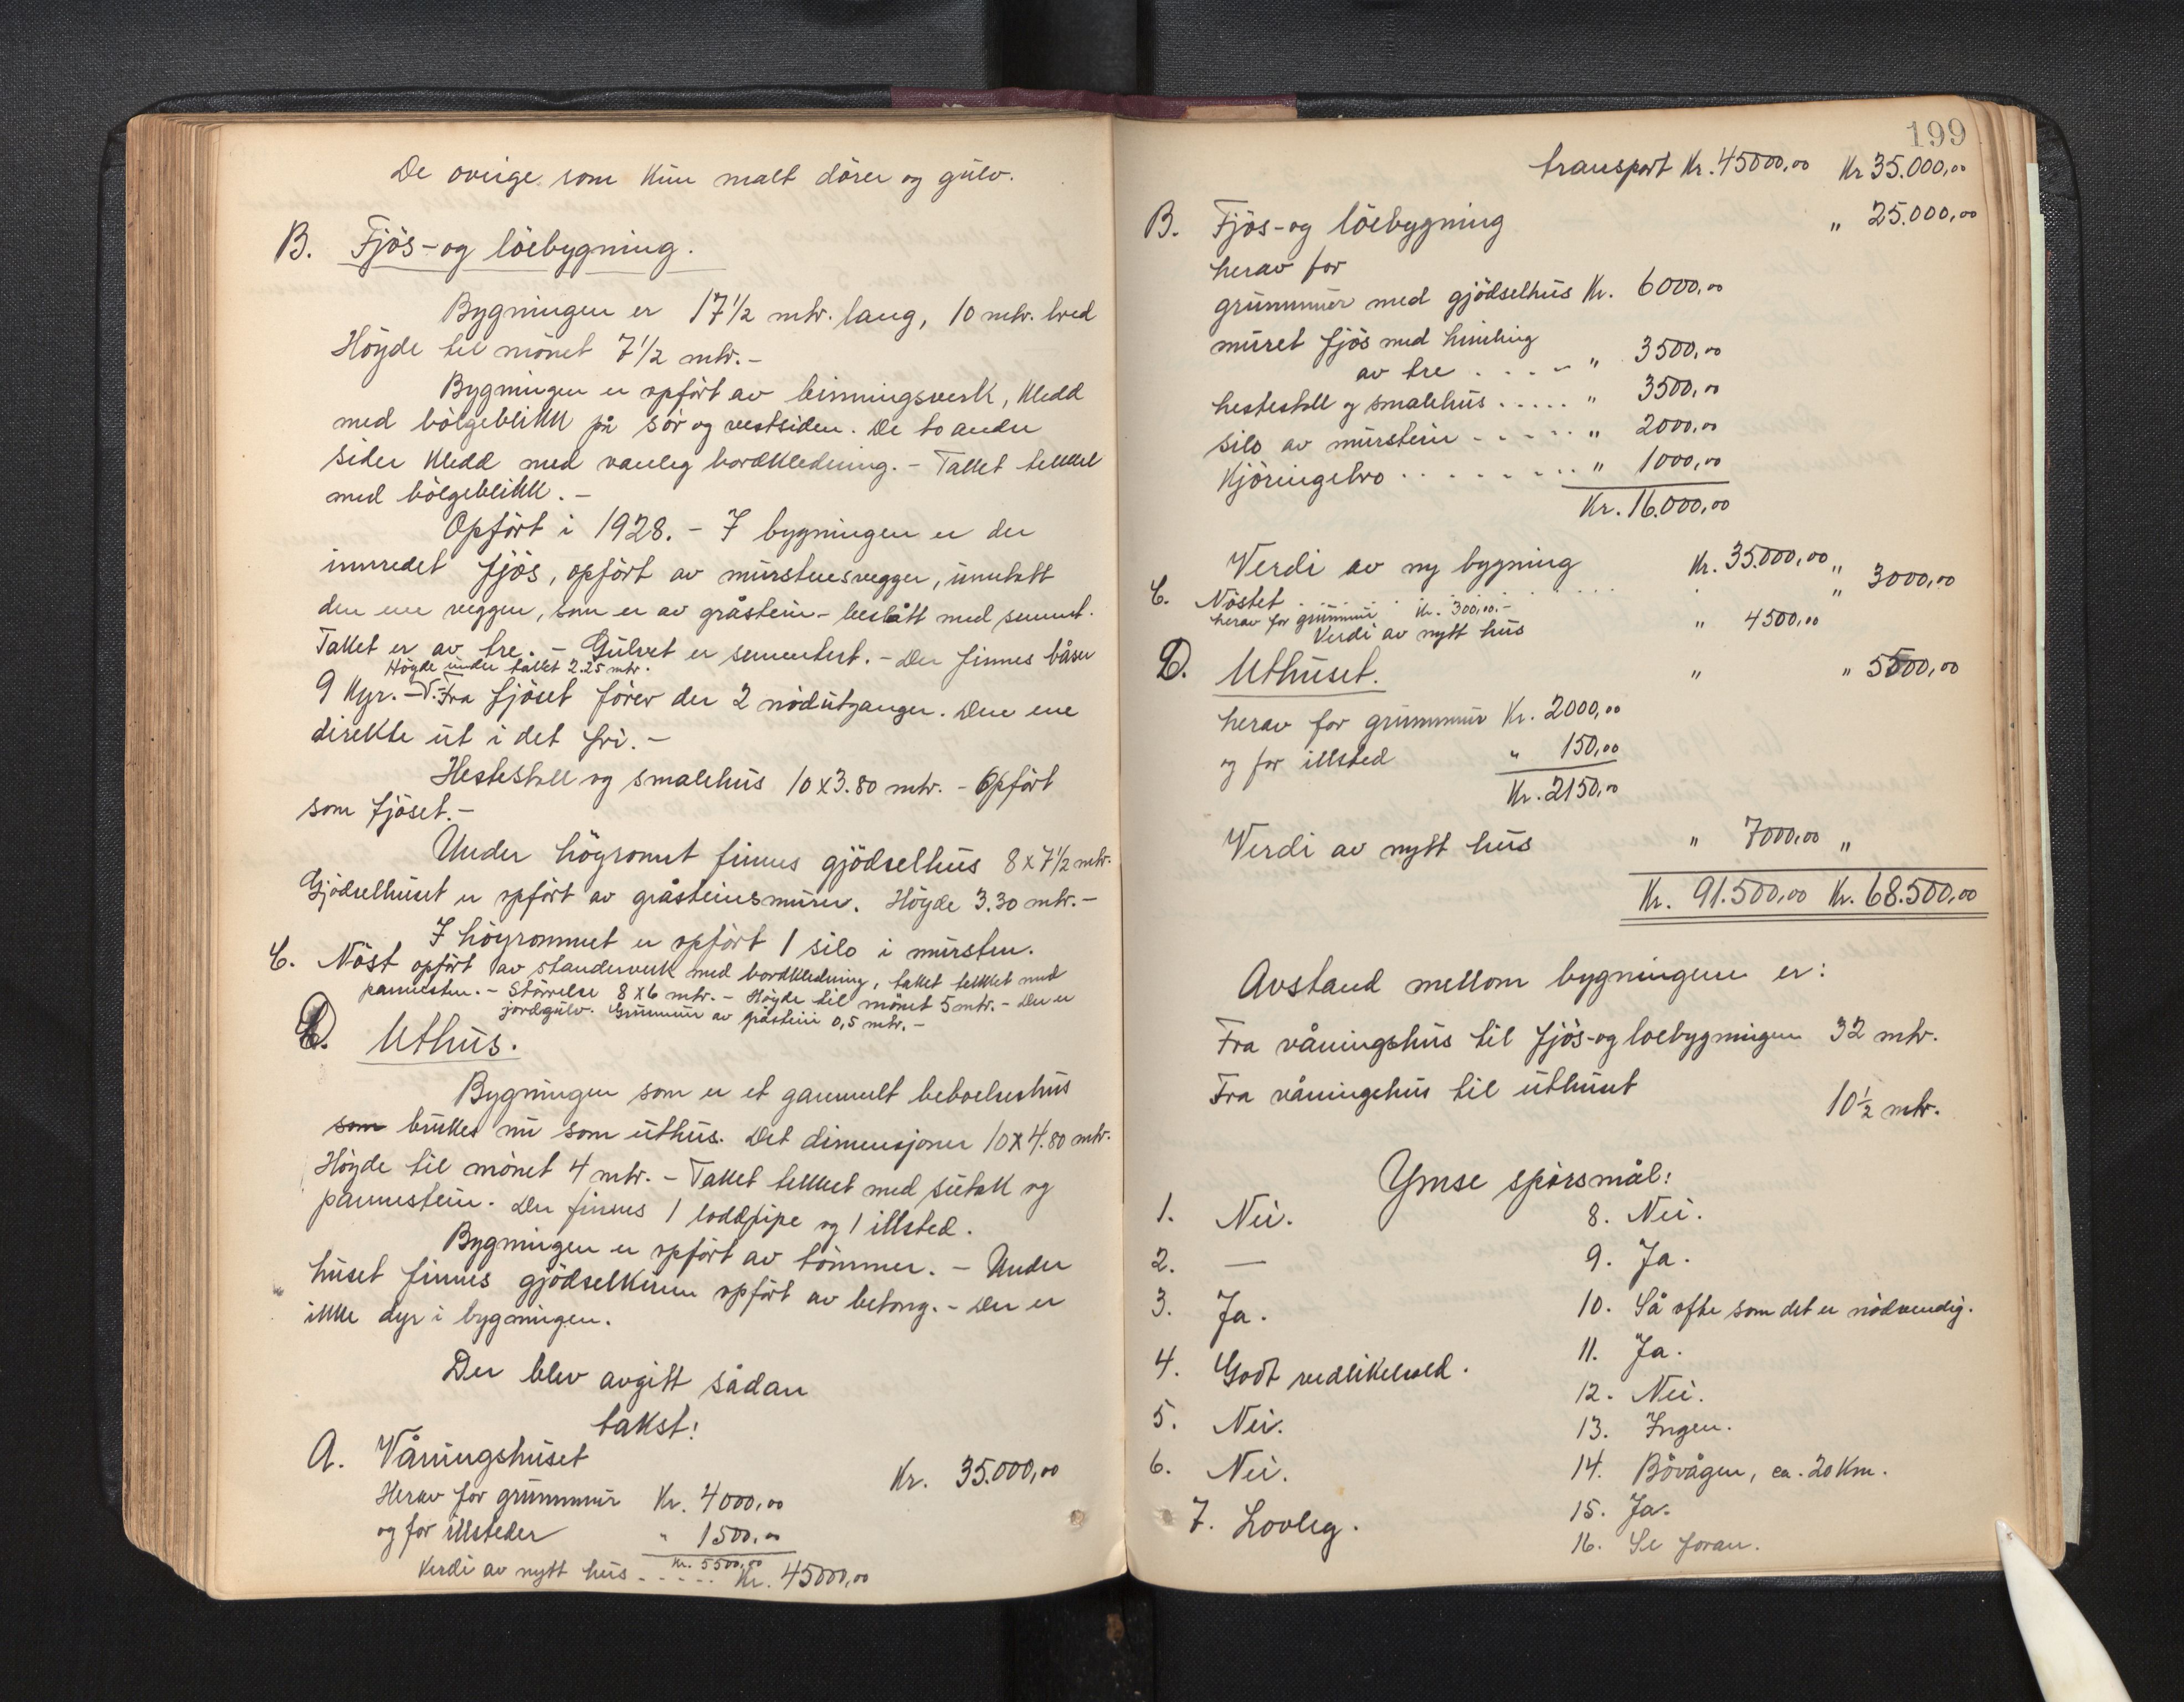 De övrige som kun malt dörer og gulv.
B. Fjös- og löebygning.
Bygningen er 17 1/2 mtr. lang, 10 mtr. bred
Höyde til mönet 7 1/2 mtr.-
Bygningen er opfört av binningsverk, kledd
med bölgeblikk på sör og vestsiden. De to andre
sider kledd med vanleg bordkledning. - Taket tekket
med bölgeblikk. -
Opfört i 1928. - I bygningen er der
innredet fjös, opfört av murstensvegger, unntatt
den ene veggen, som er av gråstein - beslått med sement.
Taket er av tre. - Gulvet er sementert. - Der finnes båser
Höyde under taket 2.25 mtr.
9 kyr. - Fra fjöset förer der 2 nödutganger. Den ene
direkte ut i det fri. -
Hestestall og smalehus 10 x 3.80 mtr. - Opfört
som fjöset. -
Under höyromet finnes gjödselhus 8 x 7 1/2 mtr.
Gjödselhuset er opfört av gråsteinsmurer. Höyde 3.30 mtr. -
I höyrommet er opfört 1 silo i mursten.
C. Nöst opfört av standerverk med bordkledning, taket tekket med
pannesten. - Störrelse 8 x 6 mtr. - Höyde til mönet 5 mtr. - Der er
jordgulv. Grunnmur av gråstein 0,5 mtr. -
D. Uthus.
Bygningen som er et gammelt beboelseshus
som brukes nu som uthus. Det dimensjoner 10 x 4.80 mtr.
Höyde til mönet 4 mtr. - Taket tekket med sutak og
pannestein. Der finnes 1 loddpipe og 1 illsted.
Bygningen er opfört av tömmer. - Under
huset finnes gjödselkum opfört av betong. - Der er
ikke dyr i bygningen.
Der blev avgitt sådan
takst:
A. Våningshuset Kr. 35.000,00
Herav for grunnmur Kr. 4000,00
og for illsteder " 1500,00
Kr. 5500,00
Verdi av nytt hus ..... Kr. 45000,00
199
transport Kr. 45000,00 Kr 35.000,00
B. Fjös- og löebygning " 25.000,00
herav for
grunnmur med gjödselhus Kr. 6000,00
muret fjös med himling
av tre .... " 3500,00
hestestall og smalehus ..... " 3500,00
silo av murstein ..... " 2000,00
Kjöringebro ........ " 1000,00
Kr. 16.000,00
Verdi av ny bygning Kr. 35.000,00 "
C. Nöstet ........ " 3000,00
herav for grunnmur Kr. 300,00.-
Verdi av nytt hus " 4500,00
D. Uthuset. " " 5500,00
herav for grunnmur Kr. 2000,00
og for illsted " 150,00
Kr. 2150,00
Verdi av nytt hus " 7000,00 "
Kr. 91.500,00 Kr. 68.500,00
Avstand mellom bygningene er:
Fra våningshus til fjös- og loebygningen 32 mtr.
Fra våningehus til uthuset 10 1/2 mtr.
Ymse spörsmål:
1. Nei.
2. —
3. Ja.
4. Godt vedlikehold.
5. Nei.
6. Nei.
7. Lovleg.
8. Nei.
9. Ja.
10. Så ofte som det er nödvendig.
11. Ja.
12. Nei.
13. Ingen.
14. Bövågen, ca. 20 Km.
15. Ja.
16. Se foran.